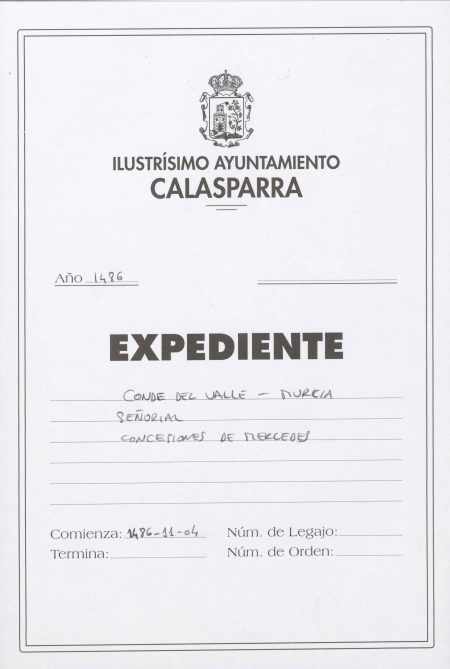 ILUSTRÍSIMO AYUNTAMIENTO
CALASPARRA
Año 1486
EXPEDIENTE
CONDE DEL VALLE - MURCIA
SEÑORIAL
CONCESIONES DE MERCEDES
Comienza: 1486-11-04 Núm. de Legajo:
Termina: Núm. de Orden: